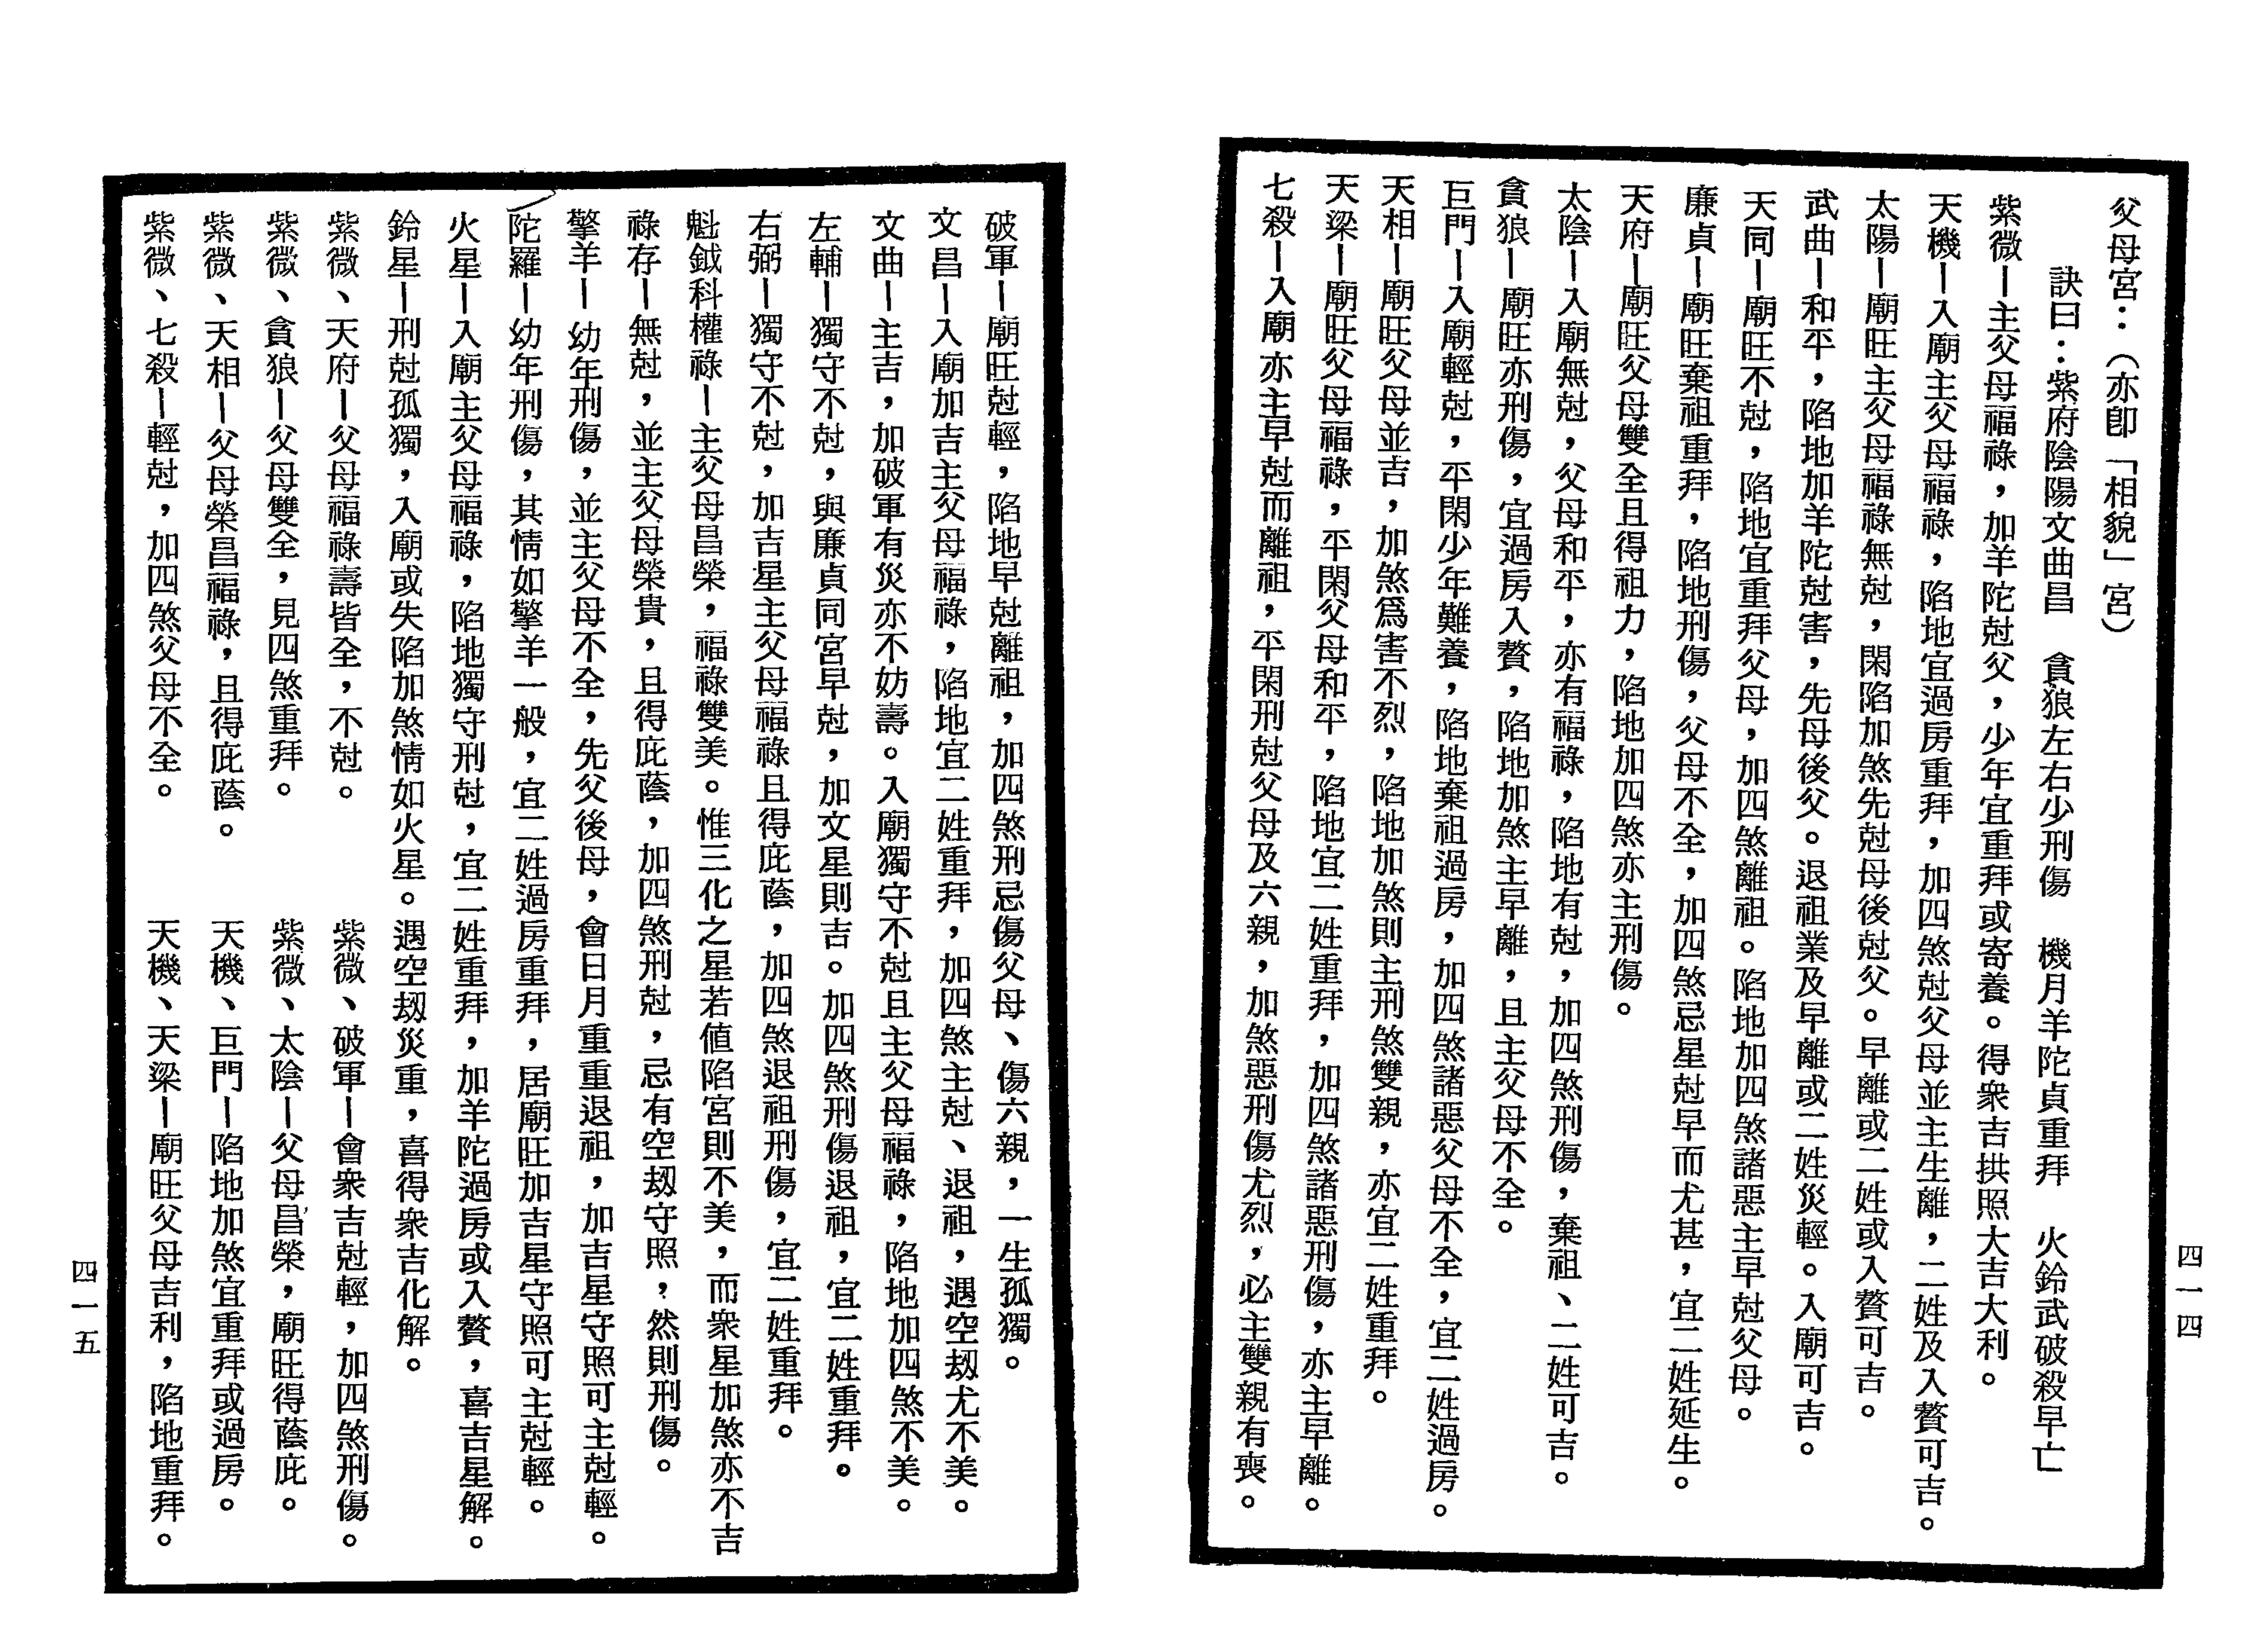 父母宮：（亦卽「相貌」宮）
訣曰：紫府陰陽文曲昌　貪狼左右少刑傷　機月羊陀貞重拜　火鈴武破殺早亡
紫微—主父母福祿，加羊陀尅父，少年宜重拜或寄養。得衆吉拱照大吉大利。
天機—入廟主父母福祿，陷地宜過房重拜，加四煞尅父母並主生離，二姓及入贅可吉。
太陽—廟旺主父母福祿無尅，閑陷加煞先尅母後尅父。早離或二姓或入贅可吉。
武曲—和平，陷地加羊陀尅害，先母後父。退祖業及早離或二姓災輕。入廟可吉。
天同—廟旺不尅，陷地宜重拜父母，加四煞離祖。陷地加四煞諸惡主早尅父母。
廉貞—廟旺棄祖重拜，陷地刑傷，父母不全，加四煞忌星尅早而尤甚，宜二姓延生。
天府—廟旺父母雙全且得祖力，陷地加四煞亦主刑傷。
太陰—入廟無尅，父母和平，亦有福祿，陷地有尅，加四煞刑傷，棄祖、二姓可吉。
貪狼—廟旺亦刑傷，宜過房入贅，陷地加煞主早離，且主父母不全。
巨門—入廟輕尅，平閑少年難養，陷地棄祖過房，加四煞諸惡父母不全，宜二姓過房。
天相—廟旺父母並吉，加煞爲害不烈，陷地加煞則主刑煞雙親，亦宜二姓重拜。
天梁—廟旺父母福祿，平閑父母和平，陷地宜二姓重拜，加四煞諸惡刑傷，亦主早離。
七殺—入廟亦主早尅而離祖，平閑刑尅父母及六親，加煞惡刑傷尤烈，必主雙親有喪。
四一四
破軍—廟旺尅輕，陷地早尅離祖，加四煞刑忌傷父母、傷六親，一生孤獨。
文昌—入廟加吉主父母福祿，陷地宜二姓重拜，加四煞主尅、退祖，遇空刼尤不美。
文曲—主吉，加破軍有災亦不妨壽。入廟獨守不尅且主父母福祿，陷地加四煞不美。
左輔—獨守不尅，與廉貞同宮早尅，加文星則吉。加四煞刑傷退祖，宜二姓重拜。
右弼—獨守不尅，加吉星主父母福祿且得庇蔭，加四煞退祖刑傷，宜二姓重拜。
魁鉞科權祿—主父母昌榮，福祿雙美。惟三化之星若值陷宮則不美，而衆星加煞亦不吉
祿存—無尅，並主父母榮貴，且得庇蔭，加四煞刑尅，忌有空刼守照，然則刑傷。
擎羊—幼年刑傷，並主父母不全，先父後母，會日月重重退祖，加吉星守照可主尅輕。
陀羅—幼年刑傷，其情如擎羊一般，宜二姓過房重拜，居廟旺加吉星守照可主尅輕。
火星—入廟主父母福祿，陷地獨守刑尅，宜二姓重拜，加羊陀過房或入贅，喜吉星解。
鈴星—刑尅孤獨，入廟或失陷加煞情如火星。遇空刼災重，喜得衆吉化解。
紫微、天府—父母福祿壽皆全，不尅。　紫微、破軍—會衆吉尅輕，加四煞刑傷。
紫微、貪狼—父母雙全，見四煞重拜。　紫微、太陰—父母昌榮，廟旺得蔭庇。
紫微、天相—父母榮昌福祿，且得庇蔭。　天機、巨門—陷地加煞宜重拜或過房。
紫微、七殺—輕尅，加四煞父母不全。　天機、天梁—廟旺父母吉利，陷地重拜。
四一五